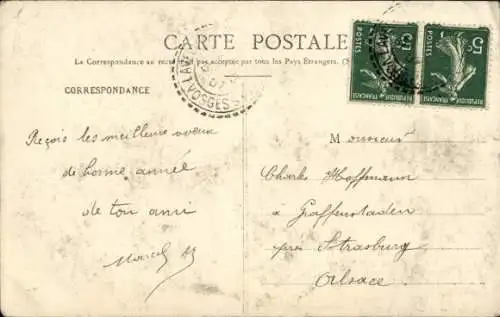 CARTE POSTALE
La Correspondance au recto n'est pas acceptée par tous les Pays Étrangers.
CORRESPONDANCE
5c
POSTES
RÉPUBLIQUE FRANÇAISE
POSTES
RÉPUBLIQUE FRANÇAISE
LAVE
VOSGES
Reçois les meilleurs vœux
de bonne année
de ton ami
Marcel
Monsieur
Charles Hoffmann
à Graffenstaden
près Strasburg
Alsace